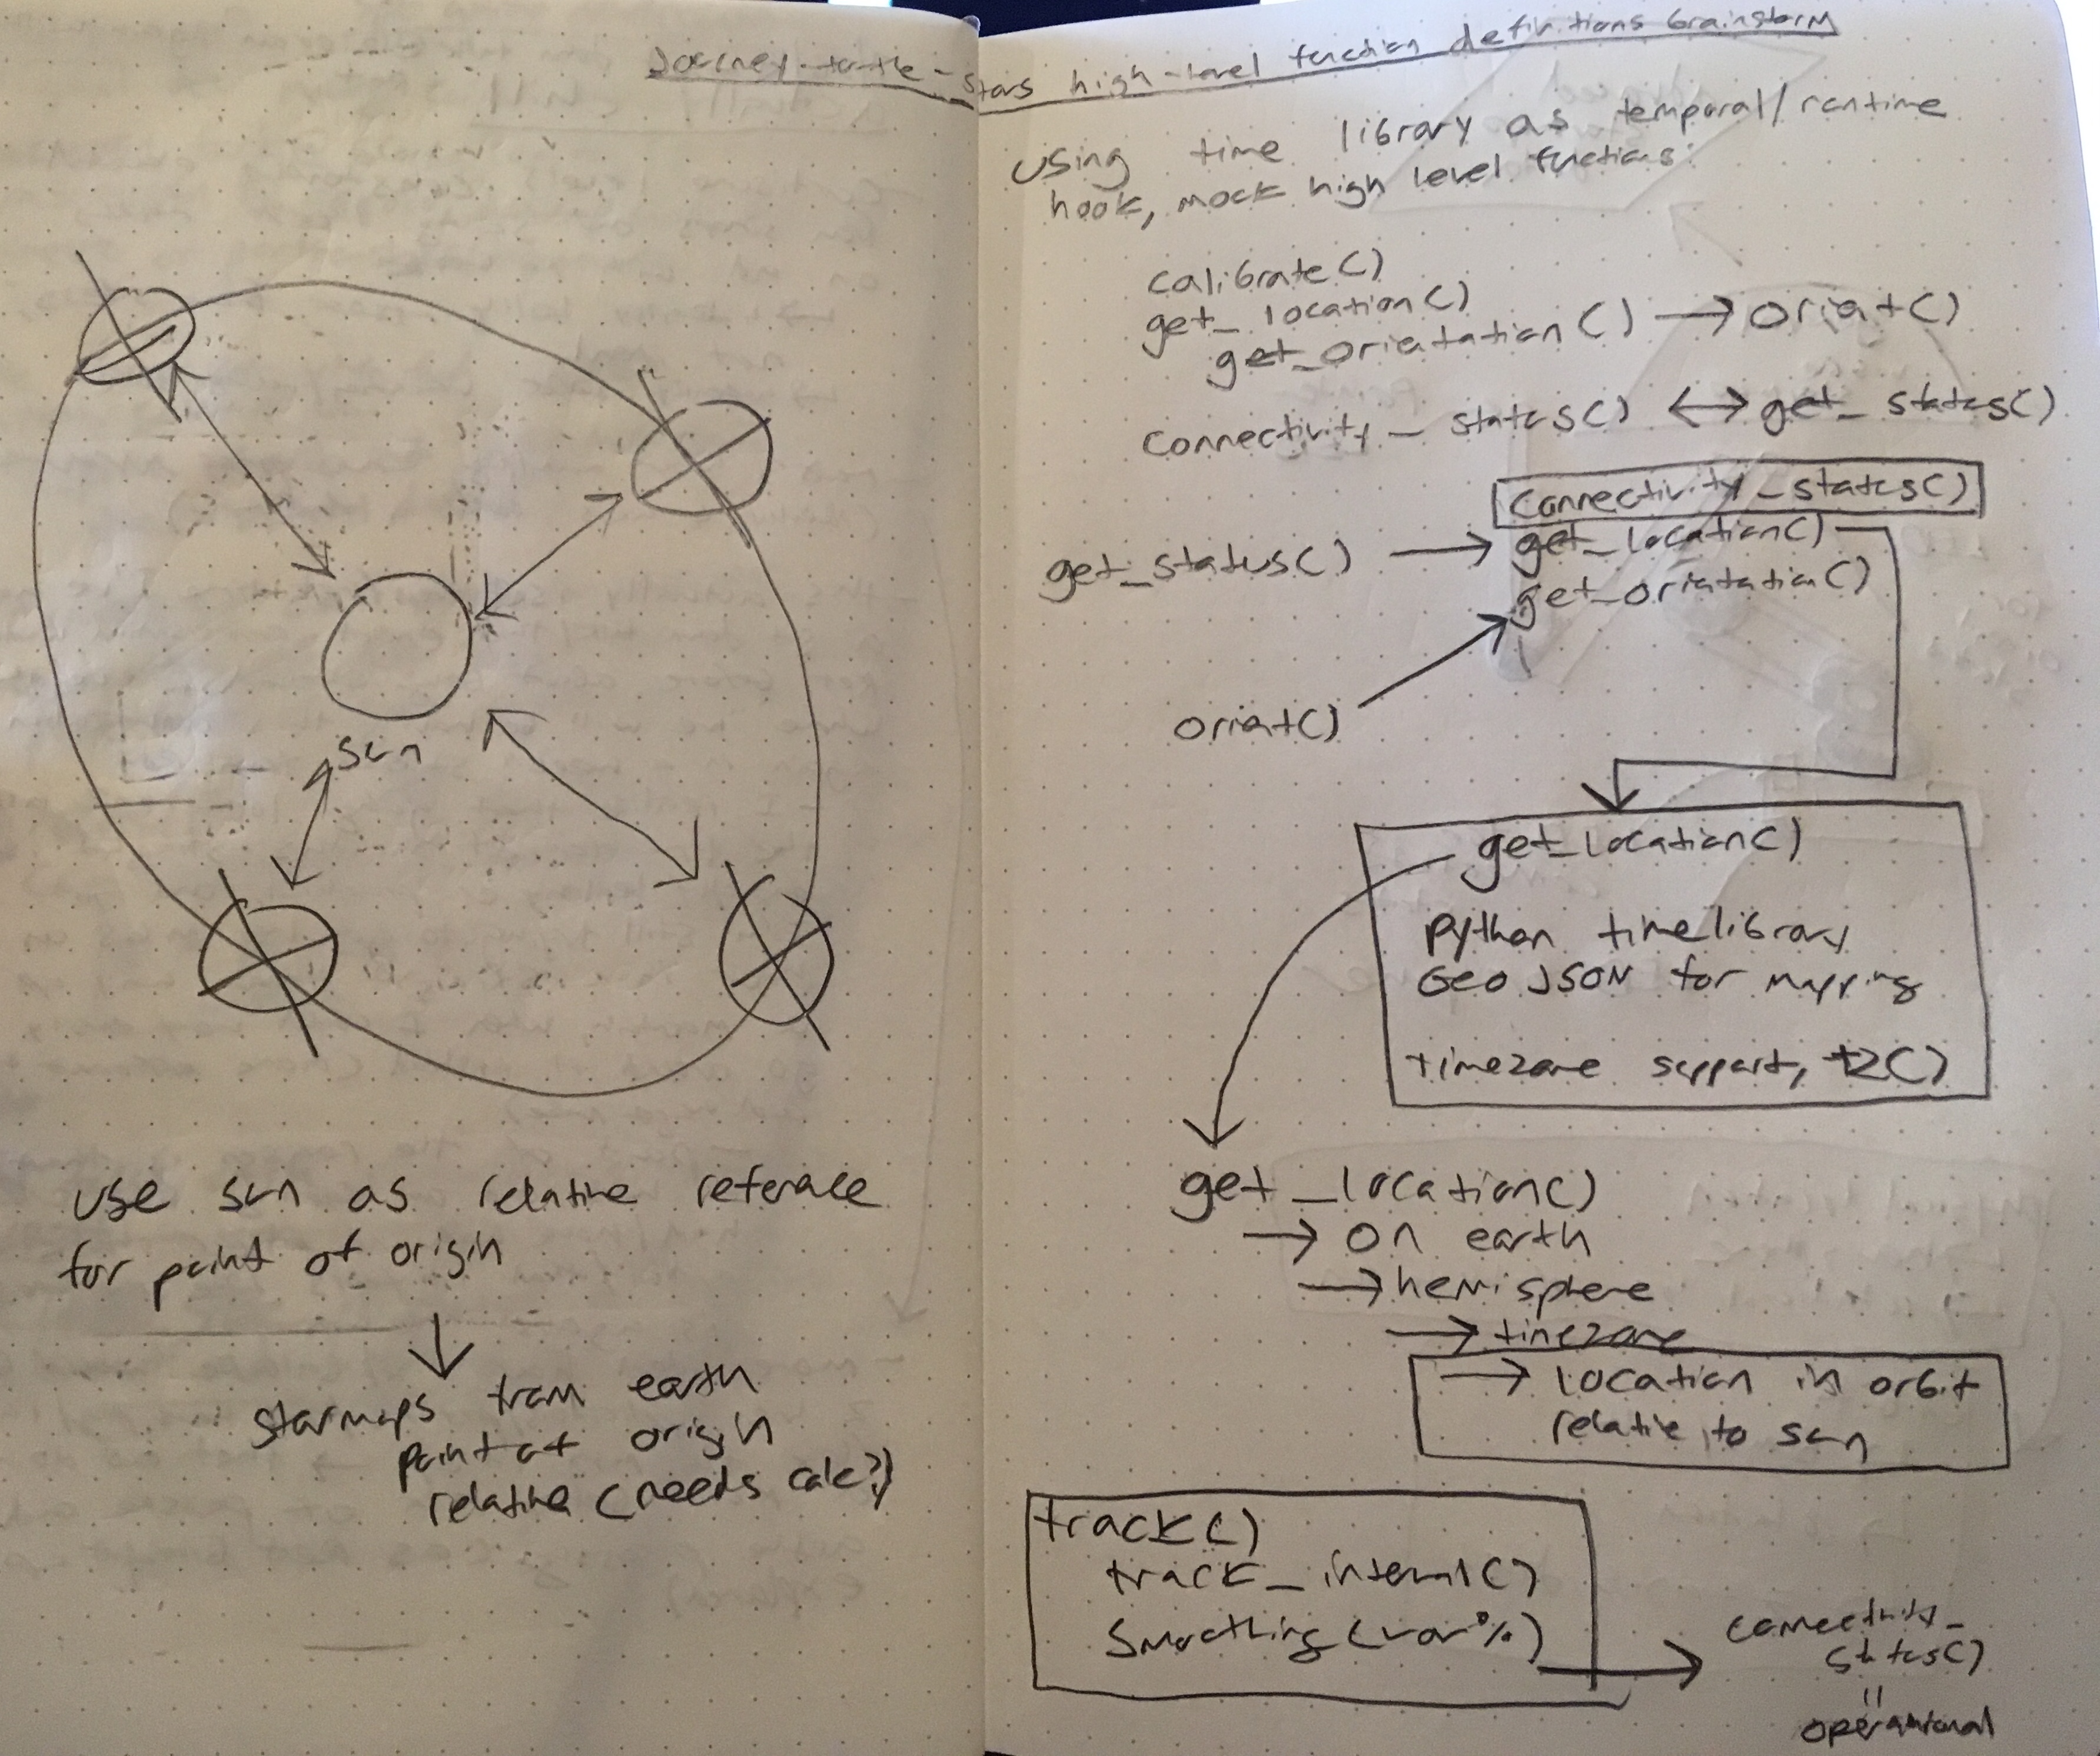 Journey-to-the-stars high-level function definitions brainstorm
sun
use sun as relative reference
for point of origin
starmaps from earth
point of origin
relative (needs calc?)
Using time library as temporal/runtime
hook, mock high level functions:
calibrate()
get_location()
get_orientation() → orient()
connectivity_status() ↔ get_status()
connectivity_status()
get_status() → get_location()
get_orientation()
orient()
get_location()
python time library
GeoJSON for mapping
timezone support, tz()
get_location()
→ on earth
→ hemisphere
→ timezone
→ location in orbit
relative to sun
track()
track_interval()
Smoothing(var%)
connectivity_
status()
"
operational